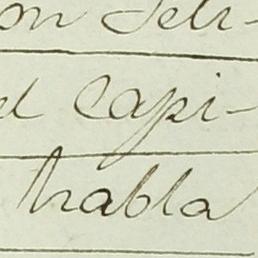 on Feli-
el Capi-
habla